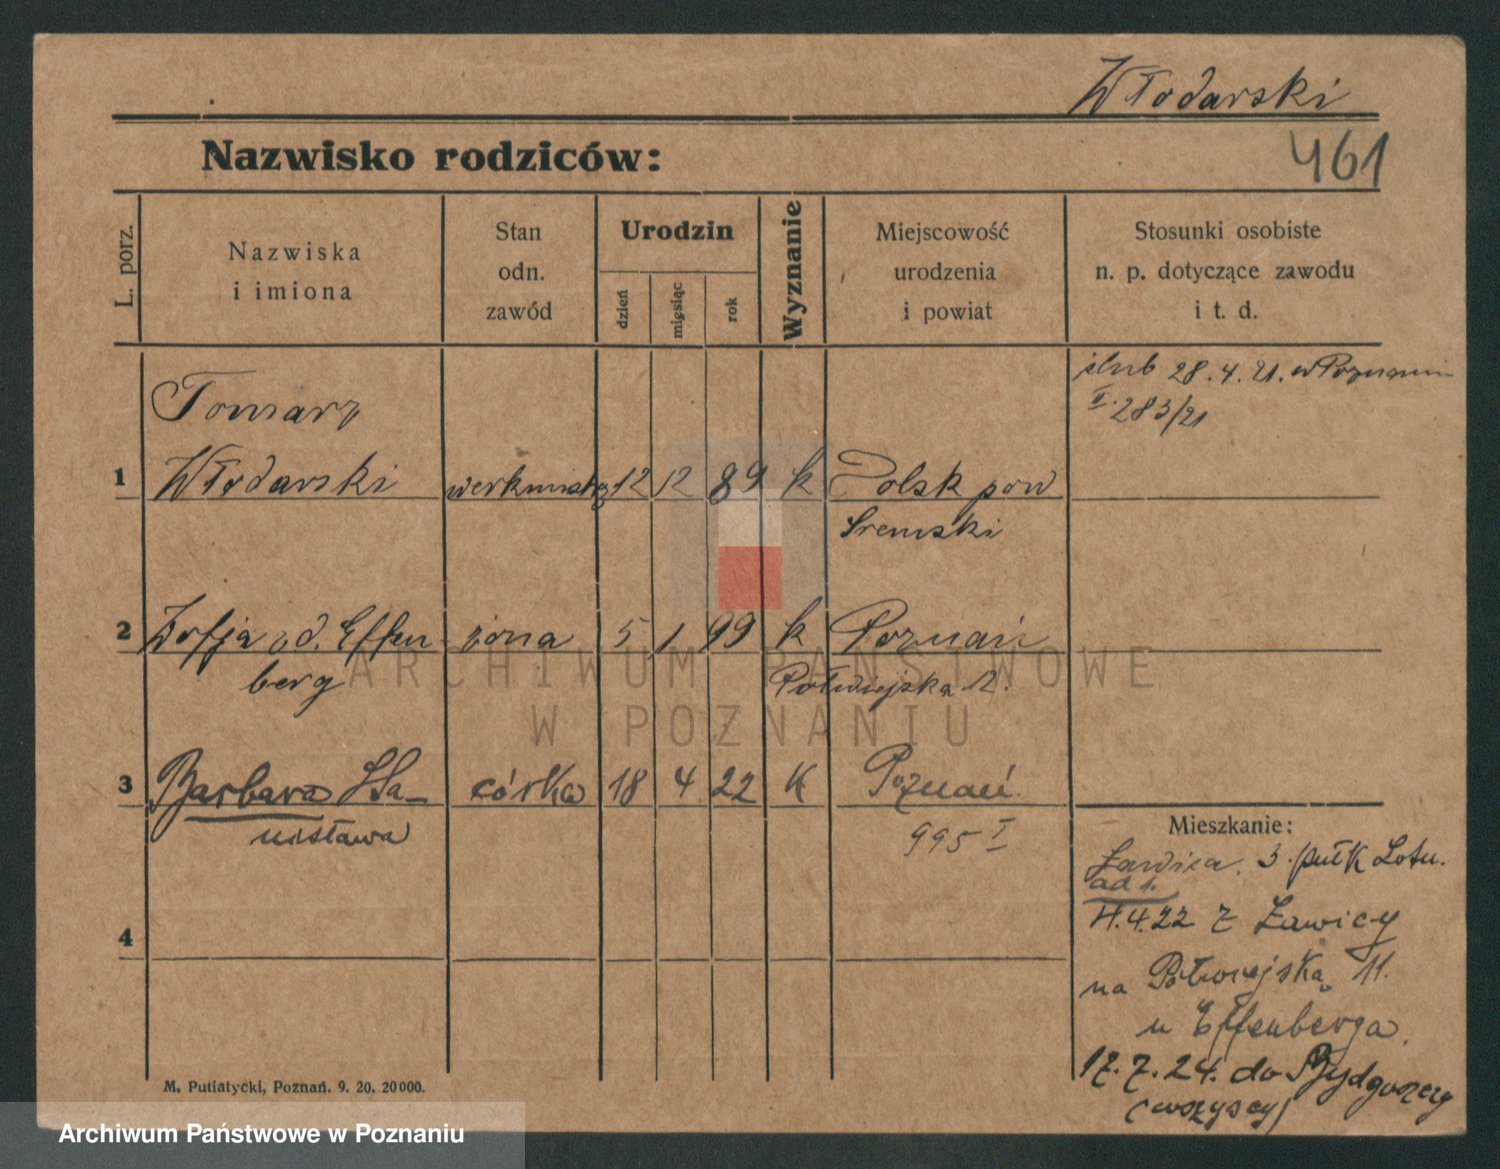 Włodarski
Nazwisko rodziców:
461
L. porz.
Nazwiska
i imiona
Stan
odn.
zawód
Urodzin
dzień
miesiąc
rok
Wyznanie
Miejscowość
urodzenia
i powiat
Stosunki osobiste
n. p. dotyczące zawodu
i t. d.
ślub 28.4.21. w Poznaniu
II. 283/21
Tomasz
1 Włodarski werkmistrz 12 12 89 k Dolsk pow
Śremski
2 Zofja od. Effen- żona 5 1 99 k Poznań
berg Półwiejska 12.
3 Barbara Sta- córka 18 4 22 K Poznań.
nisława 995 I
4
Mieszkanie:
Ławica. 3. pułk Lotn.
ad 1.
4.22 z Ławicy
na Półwiejską 11.
u Effenberga.
17.7.24. do Bydgoszczy
(wszyscy)
M. Putiatycki, Poznań. 9. 20. 20000.
ARCHIWUM PAŃSTWOWE
W POZNANIU
Archiwum Państwowe w Poznaniu